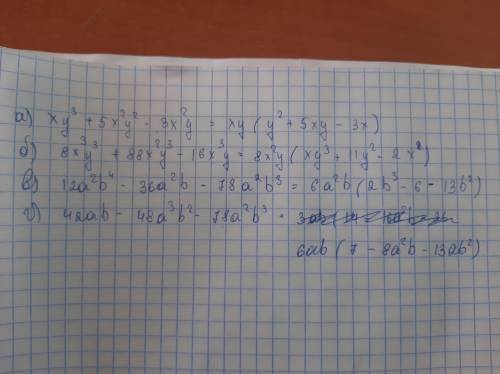 а) xy³ + 5x²y² - 3x²y = xy (y² + 5xy - 3x)
б) 8x³y³ + 88x²y³ - 16x³y = 8x²y (xy² + 11y² - 2x)
в) 12a²b⁴ - 36a²b - 78a²b³ = 6a²b (2b³ - 6 - 13b²)
г) 42ab - 48a³b² - 78a²b³ =
6ab (7 - 8a²b - 13ab²)